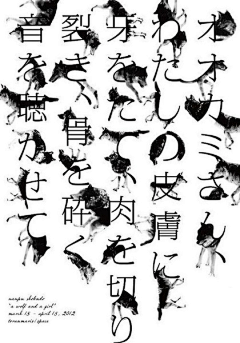 オオカミさん
わたしの皮膚に
牙をたて、肉を切り
裂き、骨を砕く
音を聴かせて
"a wolf and a girl"
march - april 15, 2012